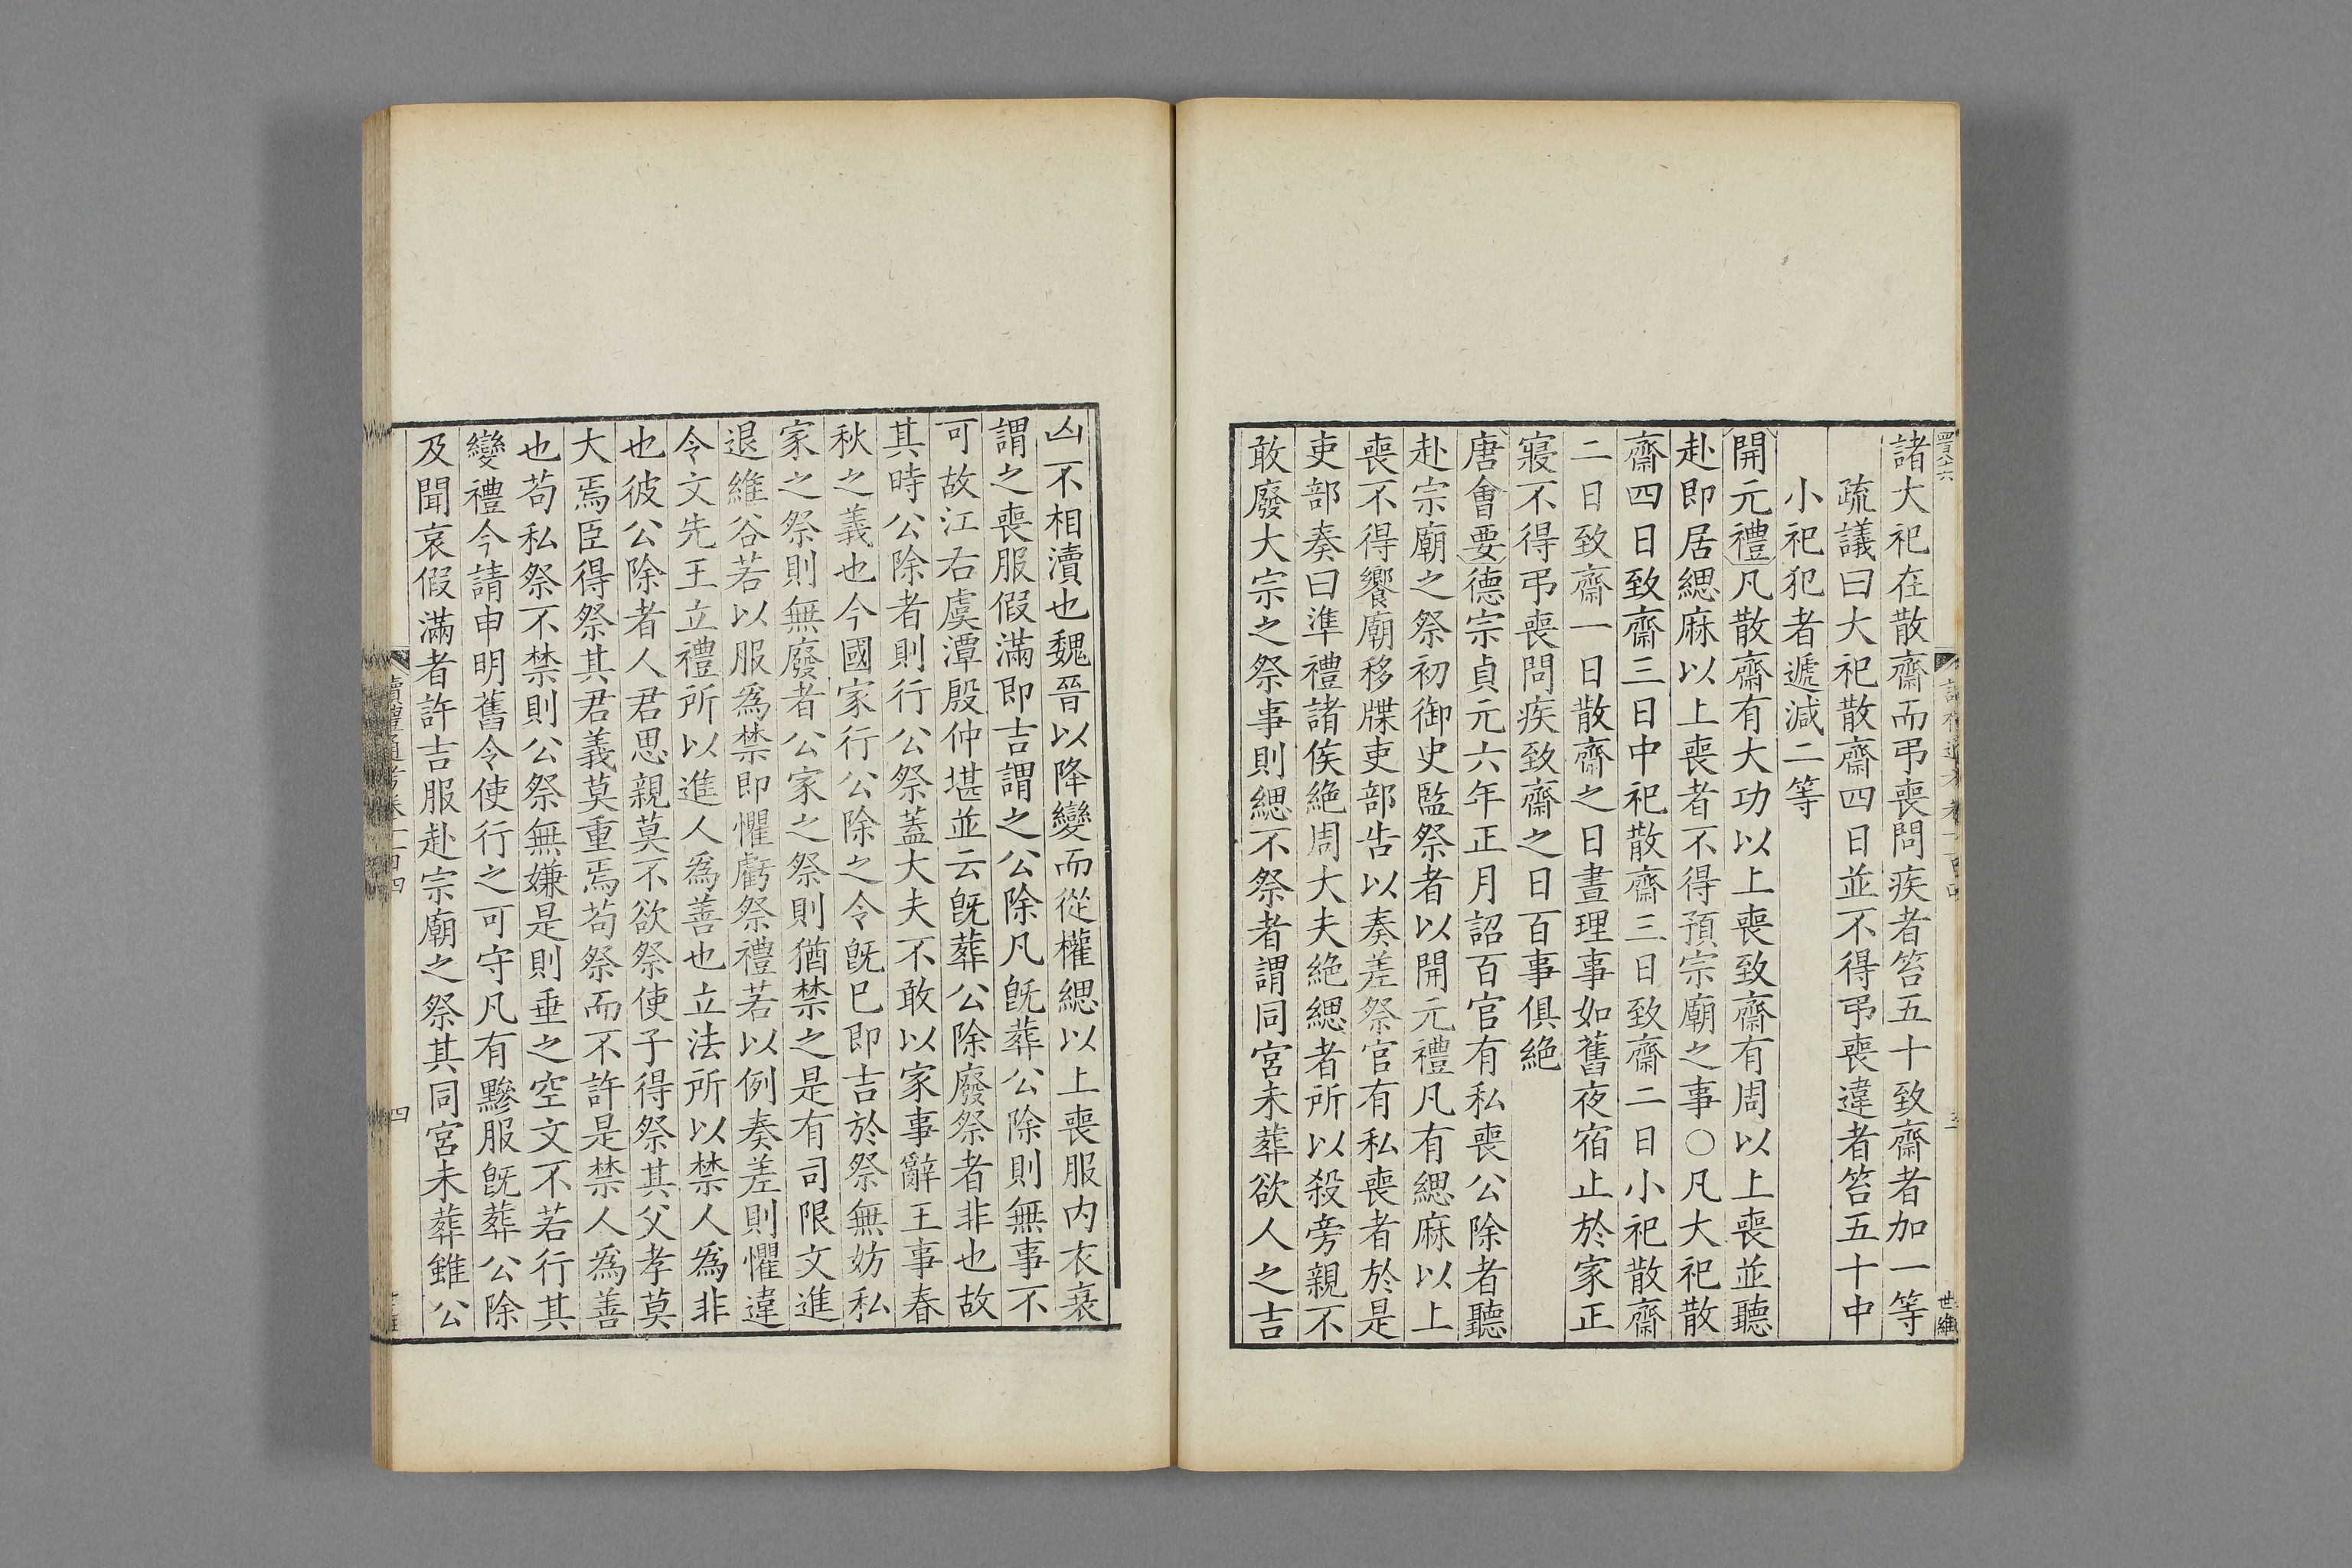 諸大祀在散齋而弔喪問疾者笞五十致齋者加一等
疏議曰大祀散齋四日並不得弔喪違者笞五十中
小祀犯者遞減二等
開元禮凡散齋有大功以上喪致齋有周以上喪並聽
赴即居緦麻以上喪者不得預宗廟之事○凡大祀散
齋四日致齋三日中祀散齋三日致齋二日小祀散齋
二日致齋一日散齋之日晝理事如舊夜宿止於家正
寢不得弔喪問疾致齋之日百事俱絶
唐會要德宗貞元六年正月詔百官有私喪公除者聽
赴宗廟之祭初御史監祭者以開元禮凡有緦麻以上
喪不得饗廟移牒吏部告以奏差祭官有私喪者於是
吏部奏曰準禮諸侯絶周大夫絶緦者所以殺旁親不
敢廢大宗之祭事則緦不祭者謂同宮未葬欲人之吉
凶不相瀆也魏晉以降變而從權緦以上喪服内衣衰
謂之喪服假滿即吉謂之公除凡旣葬公除則無事不
可故江右虞潭殷仲堪並云旣葬公除廢祭者非也故
其時公除者則行公祭蓋大夫不敢以家事辭王事春
秋之義也今國家行公除之令旣已即吉於祭無妨私
家之祭則無廢者公家之祭則猶禁之是有司限文進
退維谷若以服爲禁即懼虧祭禮若以例奏差則懼違
令文先王立禮所以進人爲善也立法所以禁人爲非
也彼公除者人君思親莫不欲祭使子得祭其父孝莫
大焉臣得祭其君義莫重焉茍祭而不許是禁人爲善
也茍私祭不禁則公祭無嫌是則垂之空文不若行其
變禮今請申明舊令使行之可守凡有黲服旣葬公除
及聞哀假滿者許吉服赴宗廟之祭其同宮未葬雖公
讀禮通考卷一百四
四